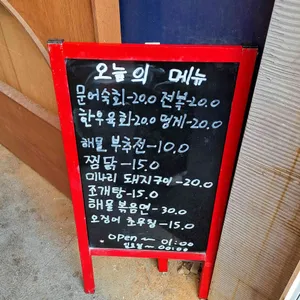 오늘의 메뉴
문어숙회-20.0 전복-20.0
한우육회-20.0 멍게-20.0
해물 부추전-10.0
찜닭-15.0
미나리 돼지구이-20.0
조개탕-15.0
해물볶음면-30.0
오징어 초무침-15.0
open~ 01:00